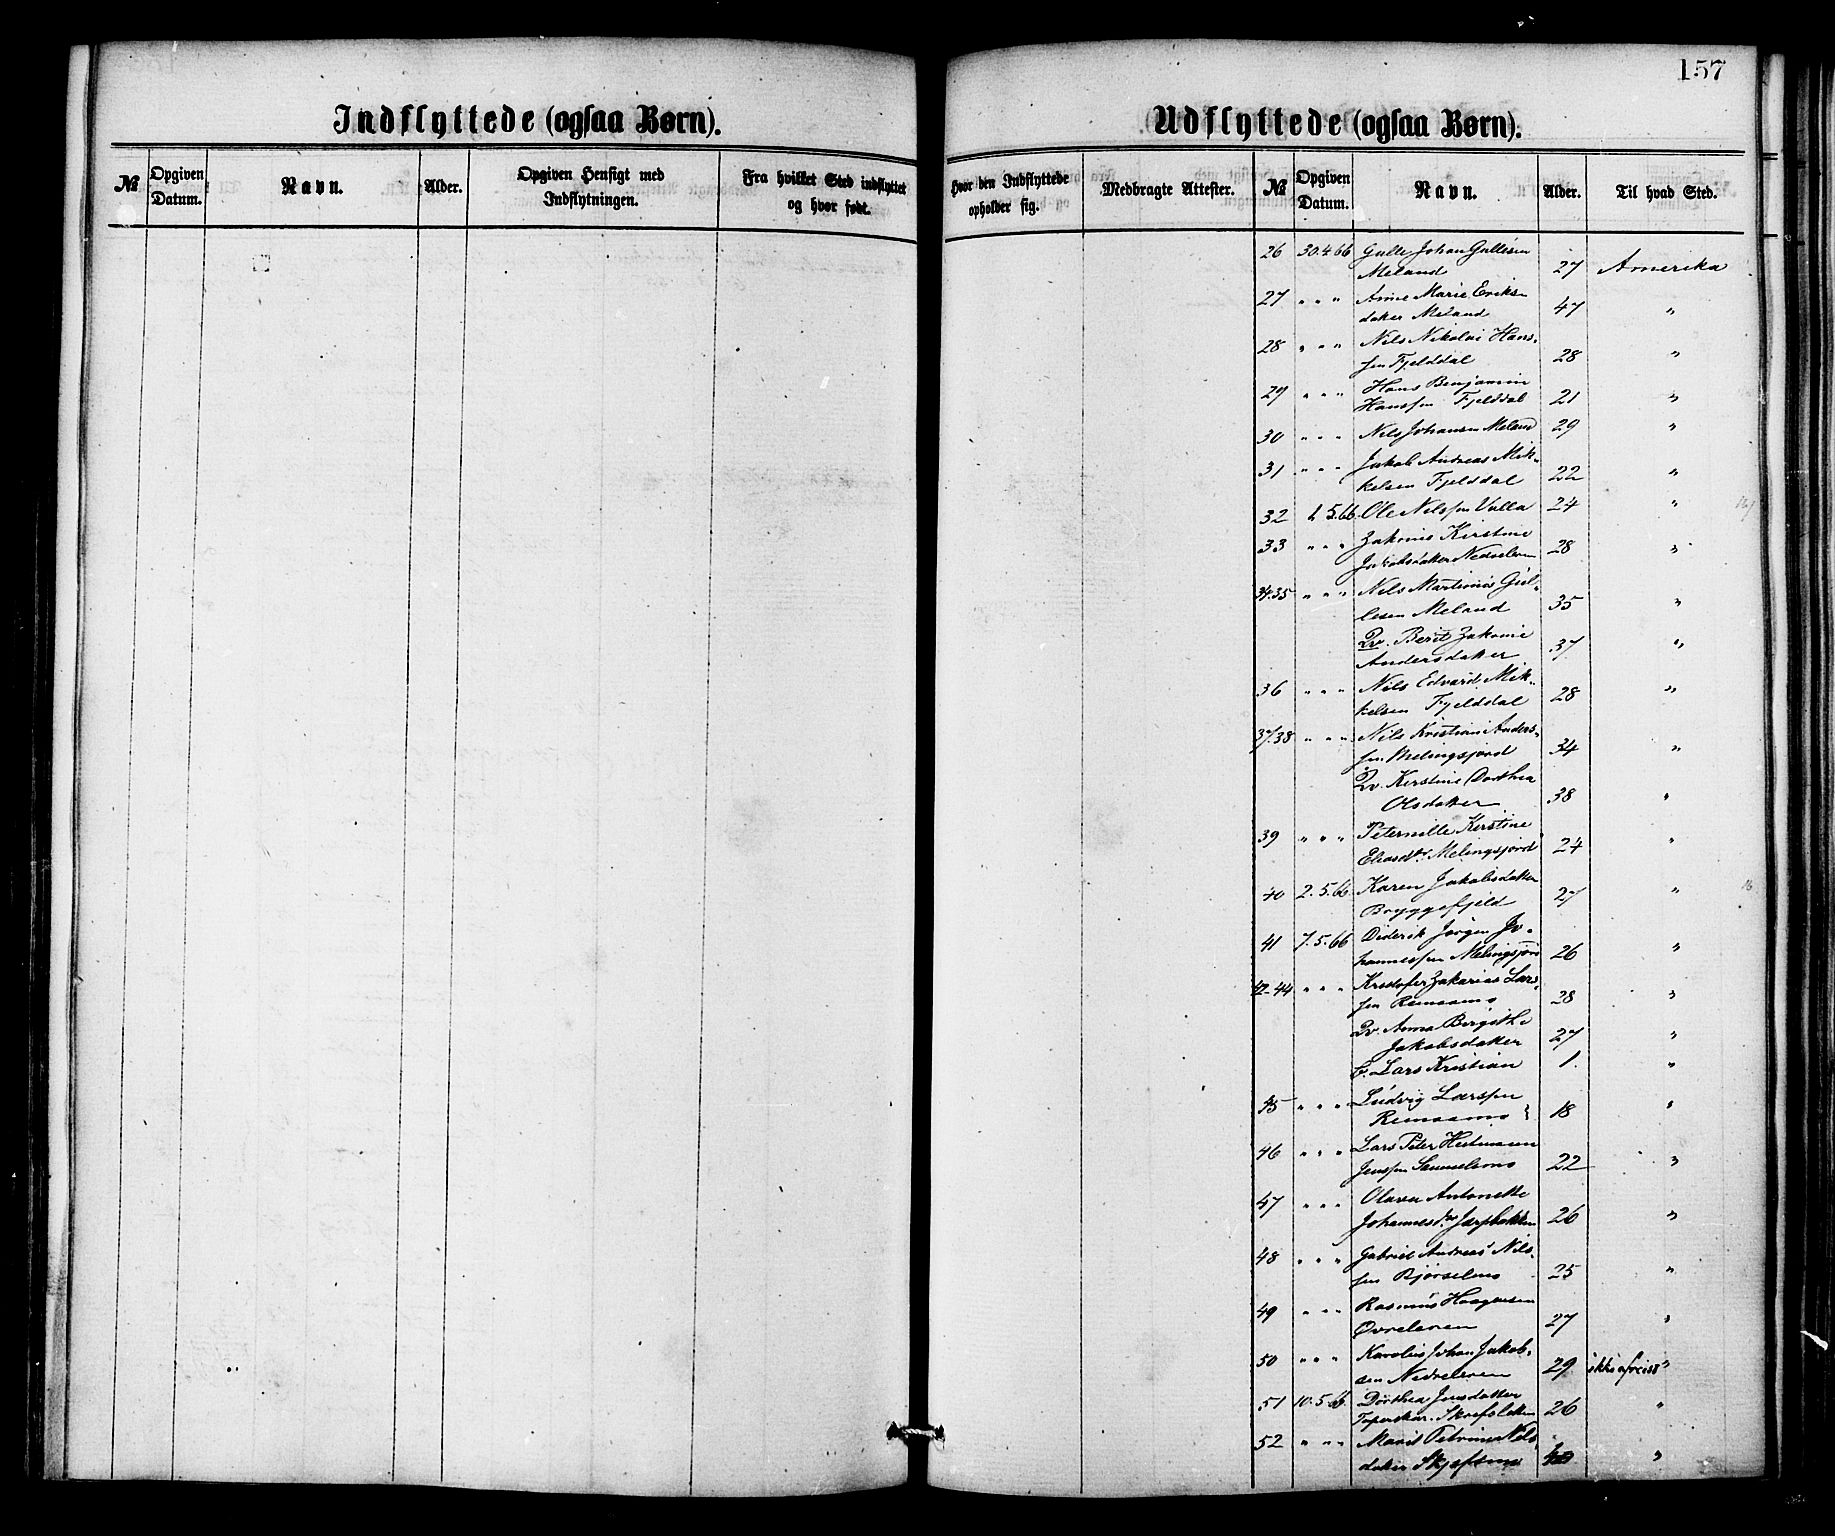 157
Indflyttede (ogsaa Børn).
Udflyttede (ogsaa Børn).
№ Opgiven Datum. Navn. Alder. Opgiven Hensigt med Indflytningen. Fra hvilket Sted indflyttet og hvor født.
Hvor den Indflyttede opholder sig. Medbragte Attester. № Opgiven Datum. Navn. Alder. Til hvad Sted.
26 30.4.66 Gulle Johan Gullesen
Meland 27 Amerika
27 " " " Anne Marie Eriks-
datter Meland 47 "
28 " " " Nils Nikolai Hans-
sen Fjelddal 28 "
29 " " " Hans Benjamin
Hanssen Fjelddal 21 "
30 " " " Nils Johansen Meland 29 "
31 " " " Jakob Andreas Mik-
kelsen Fjelddal 22 "
32 1.5.66. Ole Nilssen Valla 24 "
33 " " " Zakrine Kirstine
Jakobsdatter Nedreleren 28 "
34.35 " " " Nils Martinus Gul-
lesen Meland 35 "
Qv. Berit Zakrine
Andersdatter 37 "
36 " " " Nils Edvard Mik-
kelsen Fjelddal 28 "
37.38 " " " Nils Kristian Anders-
sen Melingsjord 34 "
Qv. Kirstine Dorthea
Olsdatter 38 "
39 " " " Peternille Kirstine
Eliasdtr Melingsjord 24 "
40 2.5.66. Karen Jakobsdatter
Bryggefjeld 27 "
41 7.5.66 Diderik Jørgen Jo-
hannessen Melingsjord 26 "
42-44 " " " Kristofer Zakarias Lars-
sen Remaamo 28 "
Qv. Anna Birgithe
Jakobsdatter 27 "
b. Lars Kristian 1. "
45 " " " Ludvig Larssen
Remaamo 18 "
46 " " " Lars Peter Heitmann
Jenssen 22 "
47 " " " Olava Antonette
Johannesdtr 26 "
48 " " " Gabriel Andreas Nils-
sen Bjørselmo 25 "
49 " " " Rasmus Haagensen
Øvreleren 27 "
50 " " " Karolius Johan Jakob-
sen Nedreleren 29 ikke afreist "
51 10.5.66. Dorthea Jensdatter
26 "
52 " " " Marit Petrine Nils-
datter Skjefsmo "